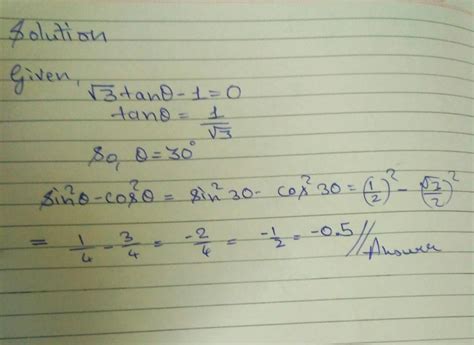 Solution
Given,
√3 tanθ - 1 = 0
tanθ = 1/√3
So, θ = 30°
sin²θ - cos²θ = sin²30 - cos²30 = (1/2)² - (√3/2)²
= 1/4 - 3/4 = -2/4 = -1/2 = -0.5 // Answer